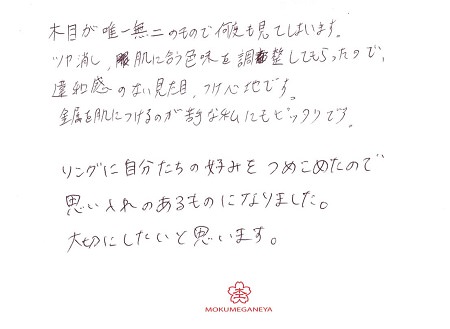 木目が唯一無二のもので何度も見てしまいます。
ツヤ消し、肌に合う色味を調整してもらったので、
違和感のない見た目、つけ心地です。
金属を肌につけるのが苦手な私にもピッタリです。
リングに自分たちの好みをつめこめたので
思い入れのあるものになりました。
大切にしたいと思います。
MOKUMEGANEYA